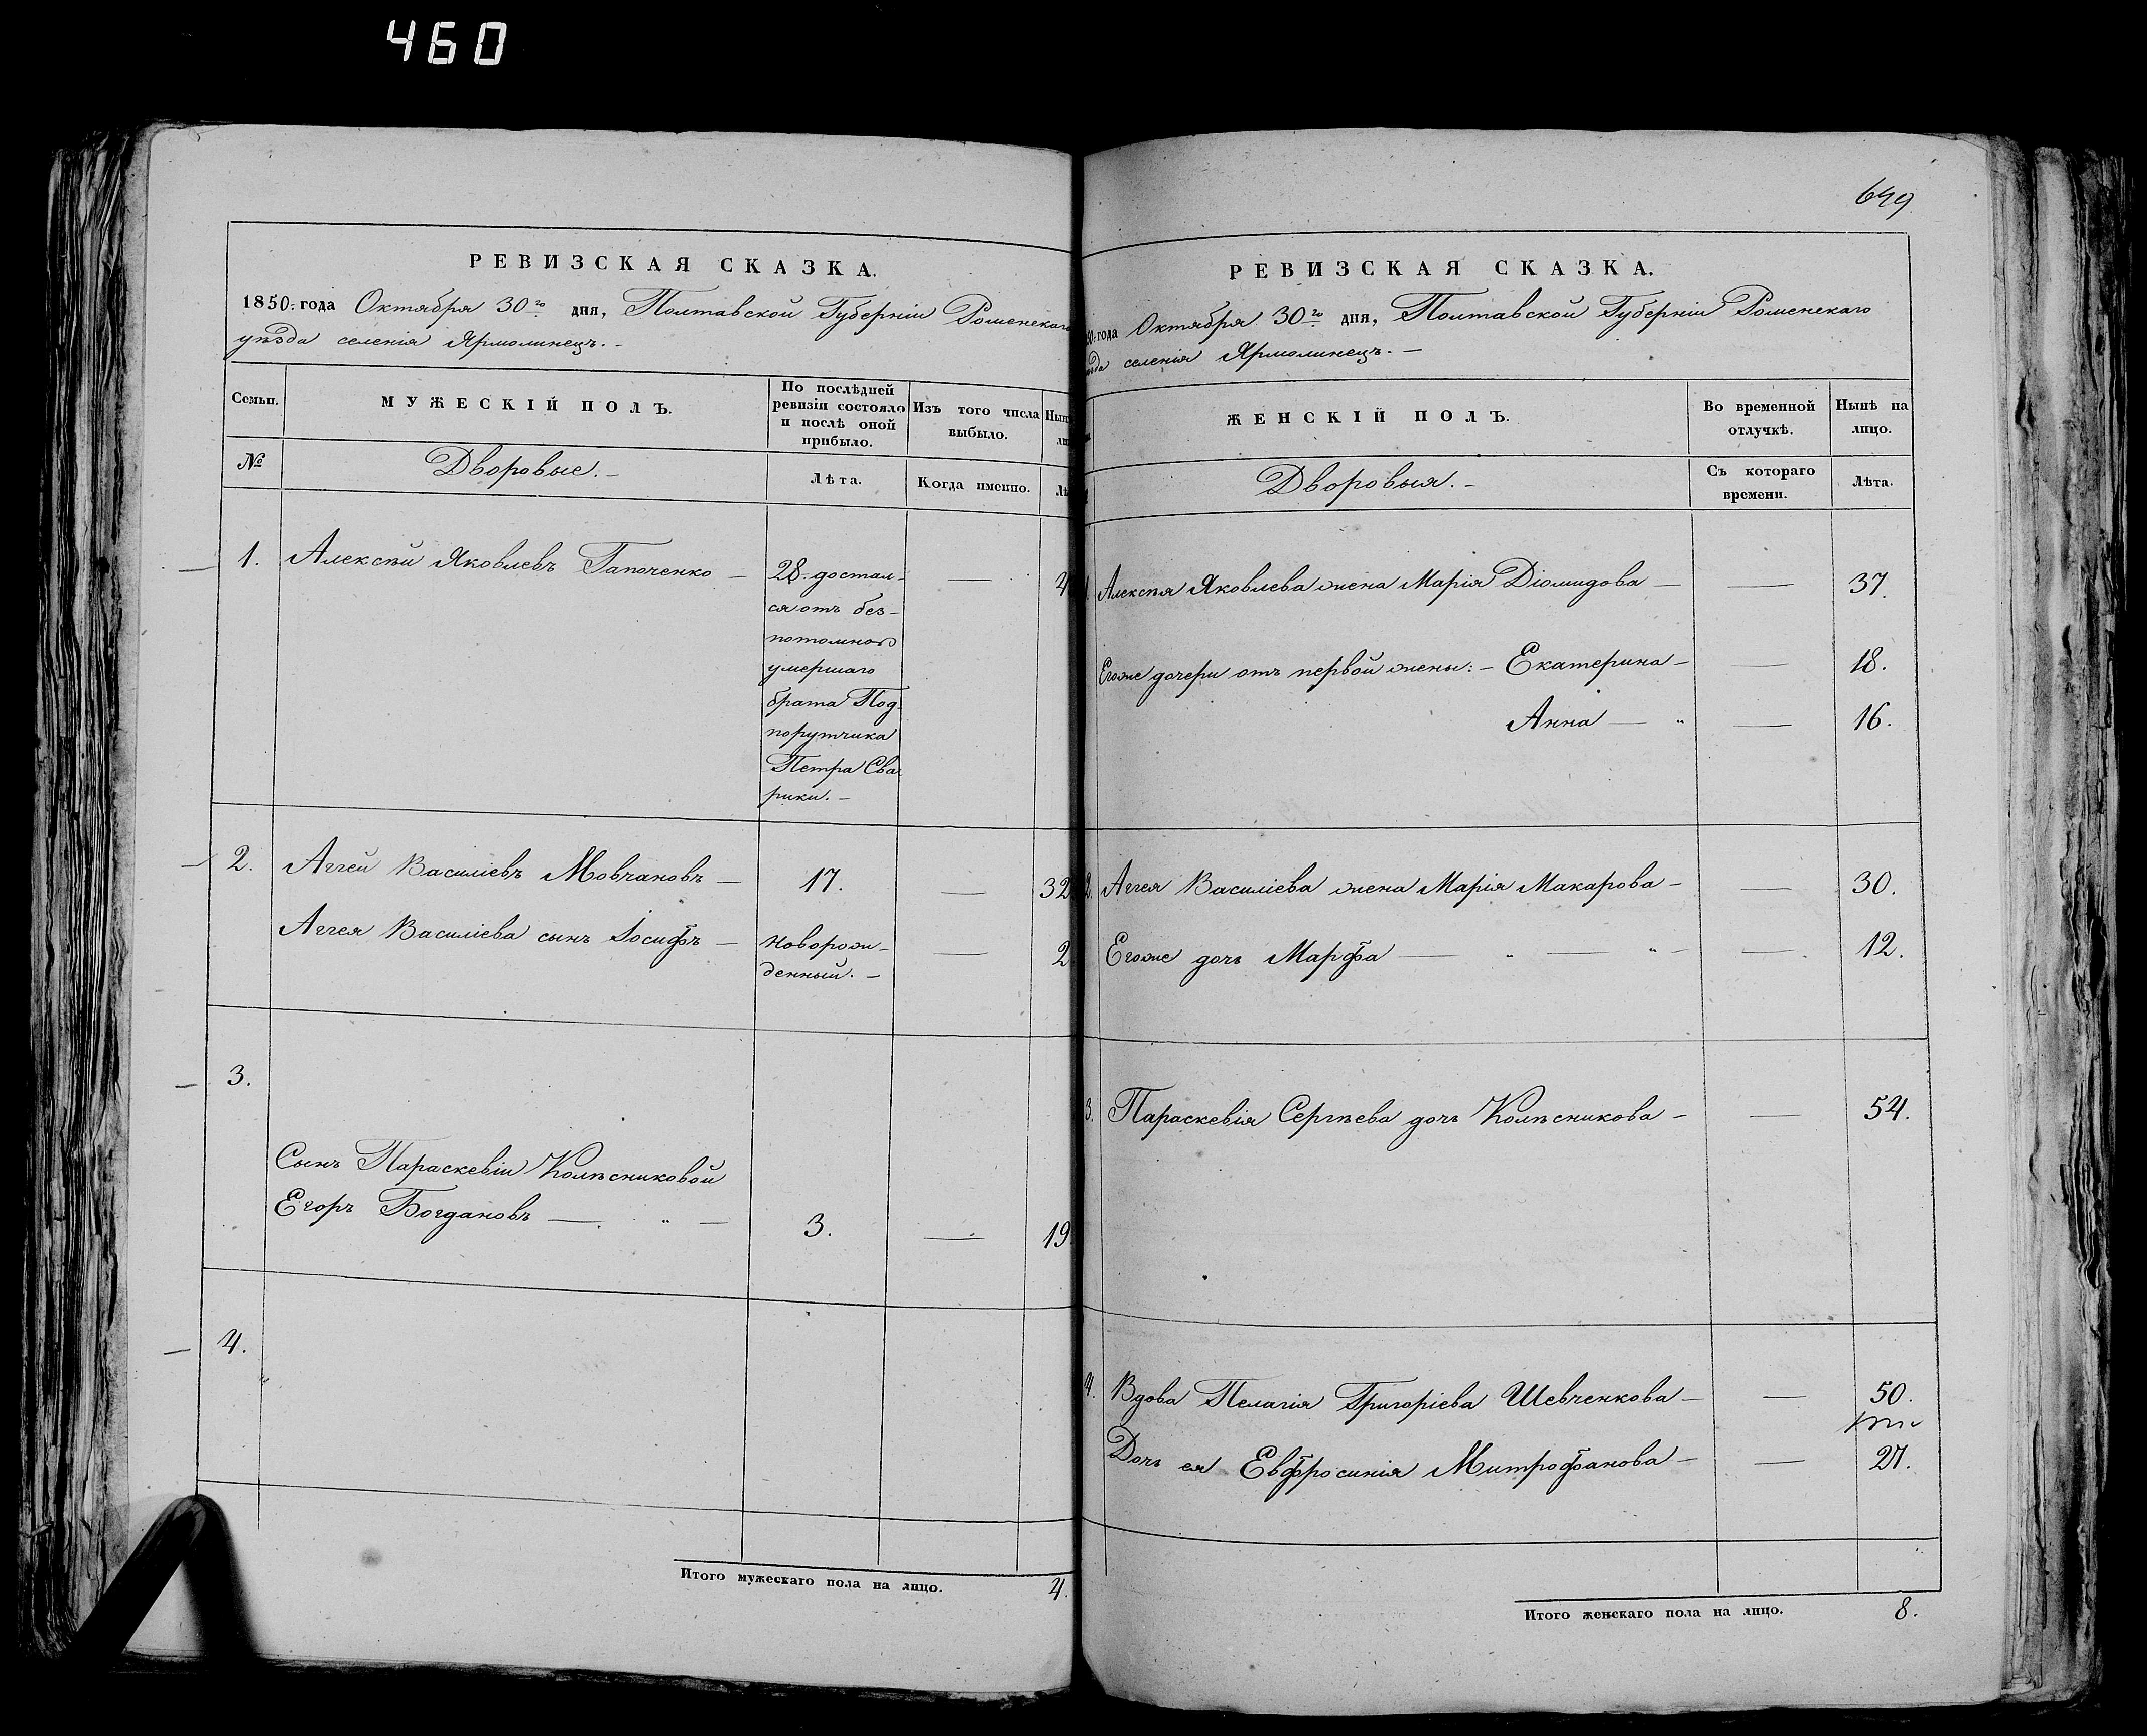 460
РЕВИЗСКАЯ СКАЗКА.
1850. года Октября 30го дня, Полтавской Губерніи Роменскаго
уѣзда селенія Ярмолинецъ. -
Семьи.
МУЖЕСКІЙ ПОЛЪ.
По послѣдней
ревизіи состояло
и послѣ оной
прибыло.
Изъ того числа
выбыло.
№
Дворовые. -
Лѣта.
Когда именно.
1. Алексѣй Яковлевъ Гапоченко —
28. достал-
ся отъ без-
потомно
умершаго
брата Под-
порутчика
Петра Сва-
рики. -
—
4
2. Аггей Василіевъ Мовчановъ — 17. — 32
Аггея Василіева сынъ Іосифъ — Новорож-
денный. -
—
2
3.
Сынъ Параскевіи Колѣсниковой
Егоръ Богдановъ — „ — 3. — 19
4.
Итого мужескаго пола на лицо. 4.
649
РЕВИЗСКАЯ СКАЗКА.
50. года Октября 30го дня, Полтавской Губерніи Роменскаго
селенія Ярмолинецъ. -
ЖЕНСКІЙ ПОЛЪ.
Во временной
отлучкѣ.
Нынѣ на
лицо.
Дворовыя. -
Съ котораго
времени.
Лѣта.
1. Алексѣя Яковлева жена Марія Діомидова — — 37.
Егоже дочери отъ первой жены: - Екатерина — — 18.
Анна — „ — 16.
2. Аггея Василіева жена Марія Макарова — — 30.
Егоже дочь Марфа — „ — „ - — 12.
3. Параскевія Сергѣева дочь Колѣсникова — — 54.
4. Вдова Пелагія Григоріева Шевченкова — — 50.
Дочь ея Евфросинія Митрофанова — — 27.
Итого женскаго пола на лицо. 8.